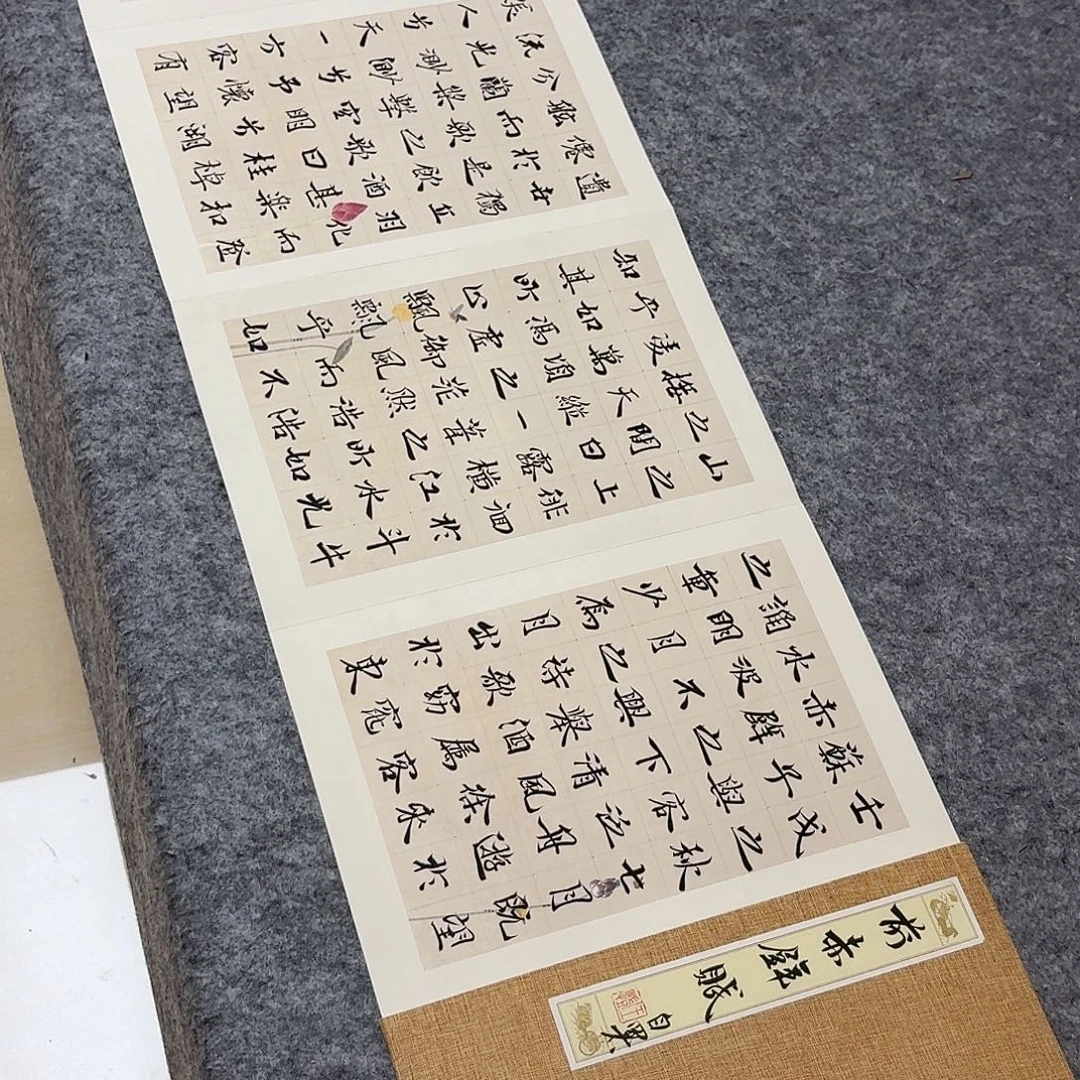 前赤壁賦
壬戌之秋七月既望
蘇子與客泛舟遊於
赤壁之下清風徐來
水波不興舉酒屬客
誦明月之詩歌窈窕
之章少焉月出於東
山之上徘徊於斗牛
之間白露橫江水光
接天縱一葦之所如
凌萬頃之茫然浩浩
乎如馮虛御風而不
知其所止飄飄乎如
遺世獨立羽化而登
僊於是飲酒甚樂扣
舷而歌之歌曰桂棹
兮蘭槳擊空明兮溯
流光渺渺兮予懷望
美人兮天一方客有